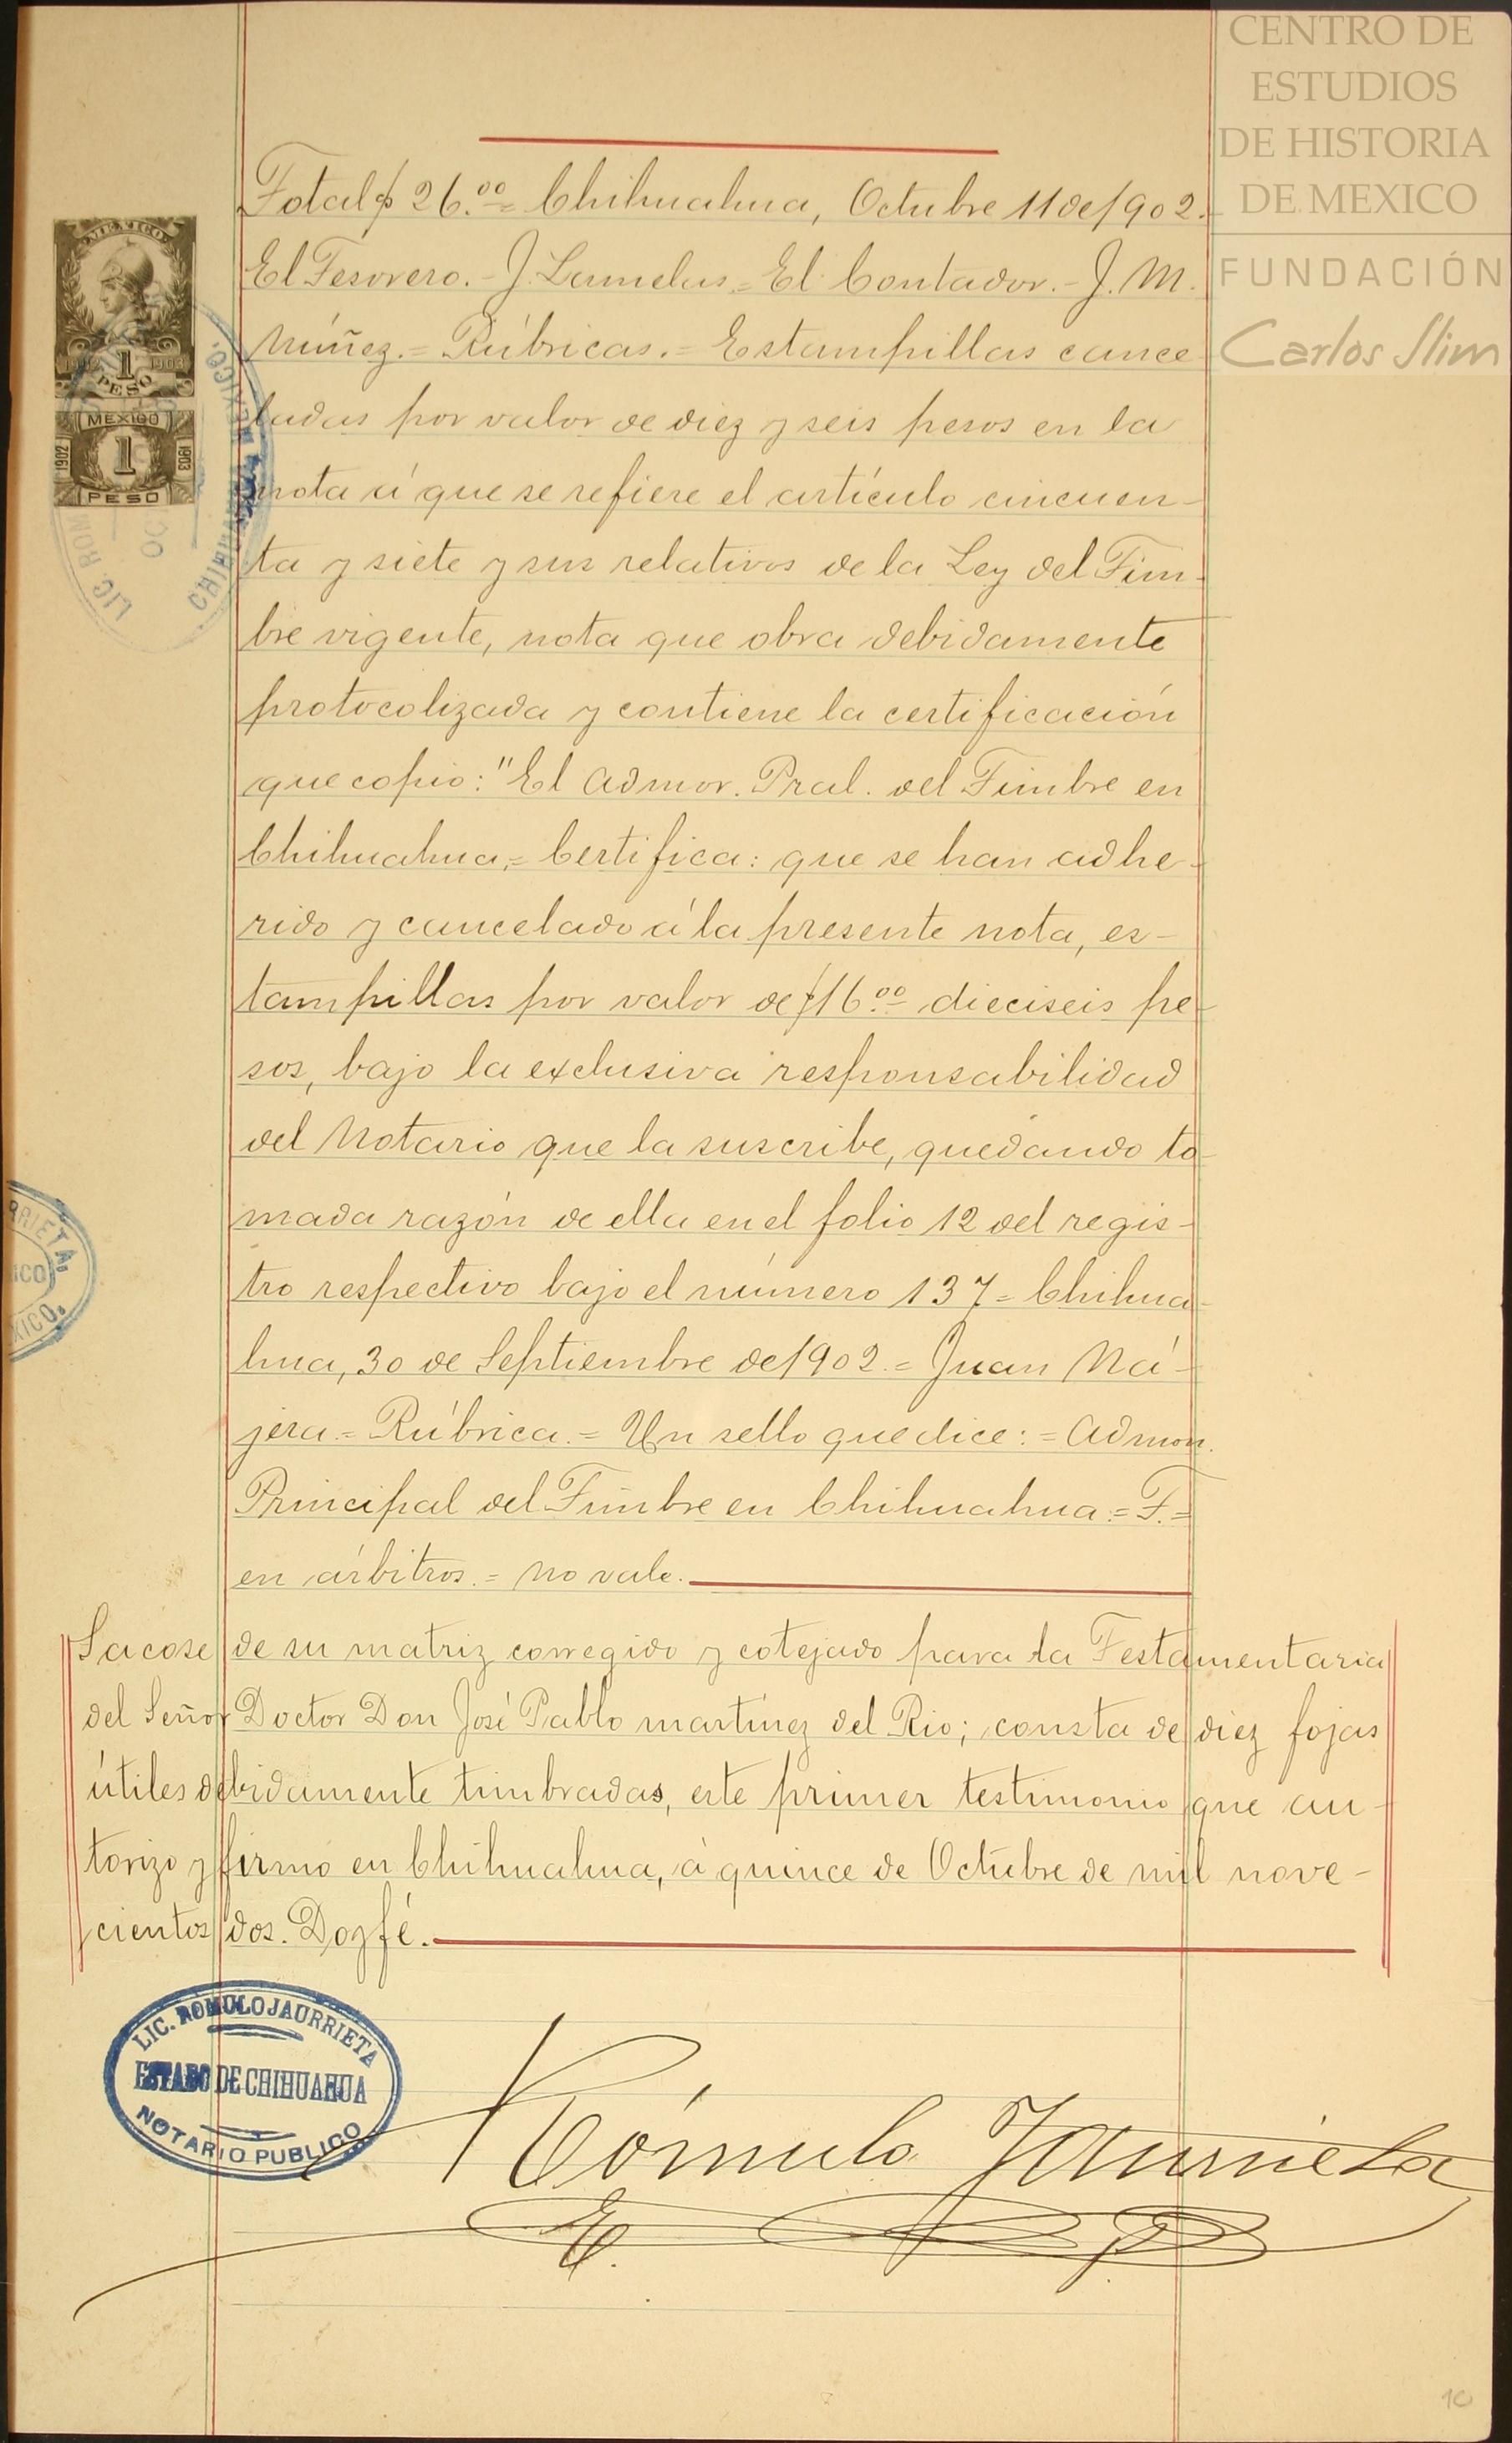 CENTRO DE
ESTUDIOS
DE HISTORIA
DE MEXICO
FUNDACIÓN
Carlos Slim
Total $ 26.00 = Chihuahua, Octubre 11 de 1902.
El Tesorero. - J. Lamelas = El Contador. - J. M.
Núñez. = Rúbricas. = Estampillas cance
ladas por valor de diez y seis pesos en la
nota á que se refiere el artículo cincuen-
ta y siete y sus relativos de la Ley del Tim-
bre vigente, nota que obra debidamente
protocolizada y contiene la certificación
que copio: "El Admor. Pral. del Timbre en
Chihuahua, = Certifica: que se han adhe-
rido y cancelado á la presente nota, es-
tampillas por valor de $16.00 dieciseis pe-
sos, bajo la exclusiva responsabilidad
del Notario que la suscribe, quedando to-
mada razón de ella en el folio 12 del regis-
tro respectivo bajo el número 137 = Chihua-
hua, 30 de Septiembre de 1902. = Juan Ná-
jera. = Rúbrica. = Un sello que dice: = Admon.
Principal del Timbre en Chihuahua. = T. =
en árbitros. = no vale.
Sacose de su matriz corregido y cotejado para la Testamentaria
del Señor Doctor Don José Pablo Martínez del Rio; consta de diez fojas
útiles debidamente timbradas, este primer testimonio que au-
torizo y firmo en Chihuahua, á quince de Octubre de mil nove-
cientos dos. Doy fé.
MEXICO
1 PESO
1903
MEXICO
1902 1 1903
PESO
LIC. ROM
CHIHUAHUA MEXICO.
RRIETA.
ICO
XICO.
LIC. ROMULO JAURRIETA
ESTADO DE CHIHUAHUA
NOTARIO PUBLICO
Rómulo Jaurrieta
10